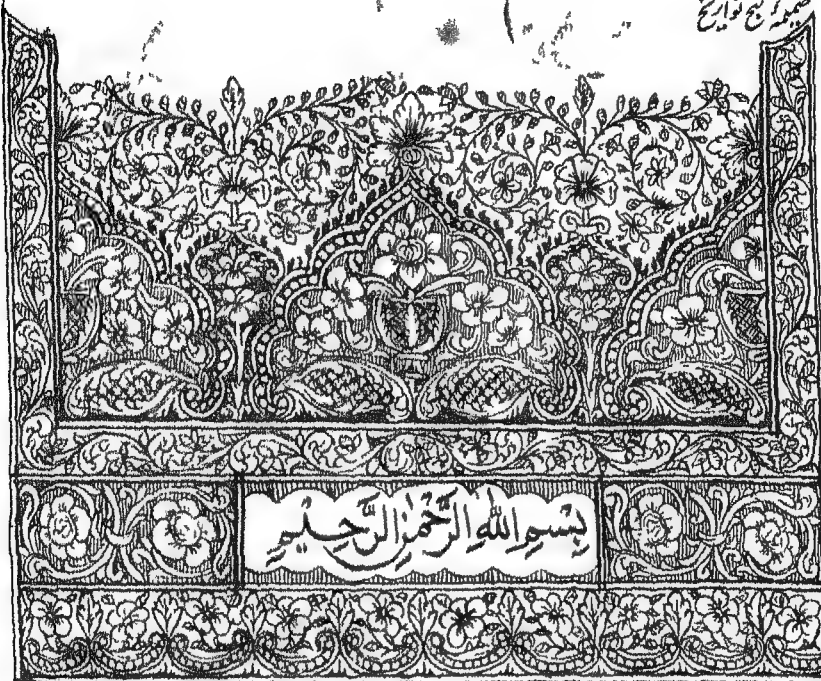 ضمیمۂ گنج تواریخ
بِسْمِ اللهِ الرَّحْمٰنِ الرَّحِيْمِ